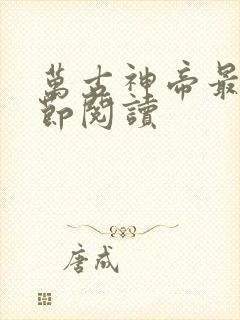 萬古神帝最
節閱讀
唐成